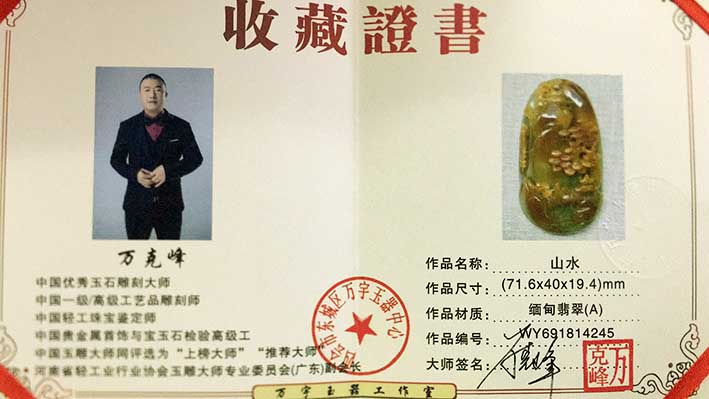 收藏證書
万克峰
中国优秀玉石雕刻大师
中国一级/高级工艺品雕刻师
中国轻工珠宝鉴定师
中国贵金属首饰与宝玉石检验高级工
中国玉雕大师网评选为“上榜大师” “推荐大师”
河南省轻工业行业协会玉雕大师专业委员会(广东)副会长
会市东城区万宇玉器中心
作品名称: 山水
作品尺寸: (71.6x40x19.4)mm
作品材质: 缅甸翡翠(A)
作品编号: WY691814245
大师签名:
万克峰
万宇玉器工作室